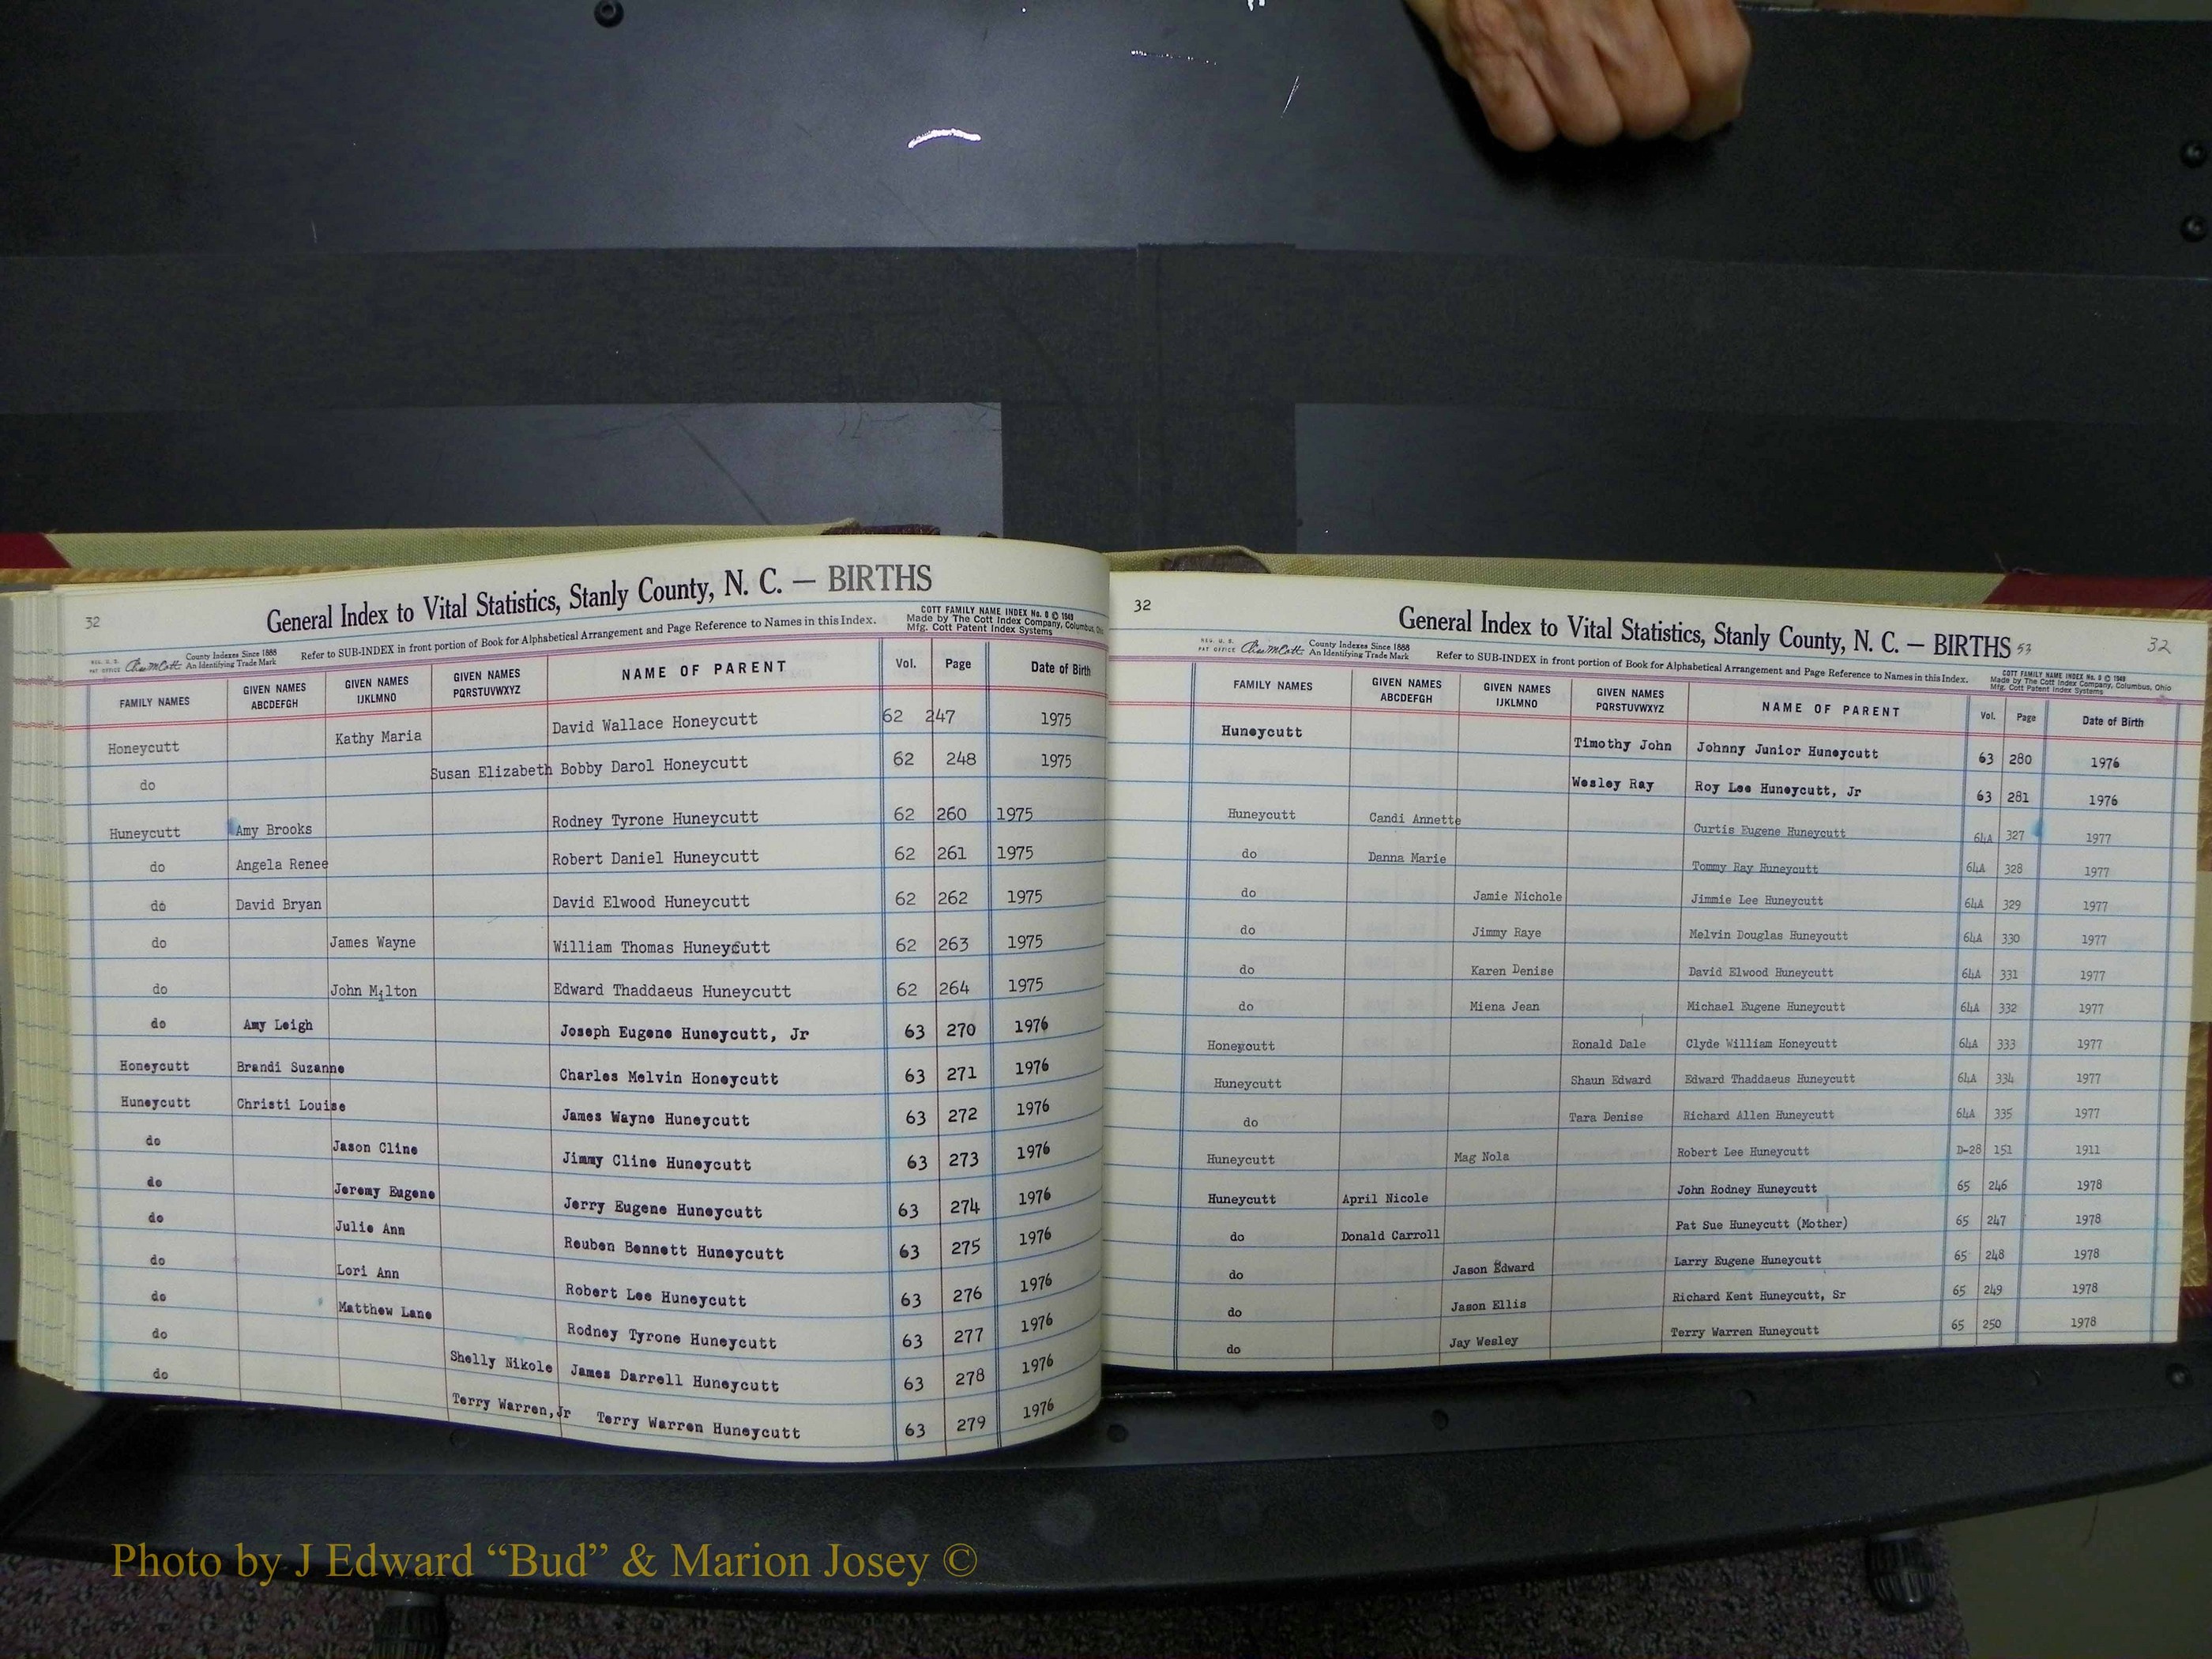 32
General Index to Vital Statistics, Stanly County, N. C. — BIRTHS
REG. U. S. PAT OFFICE County Indexes Since 1888 An Identifying Trade Mark
Refer to SUB-INDEX in front portion of Book for Alphabetical Arrangement and Page Reference to Names in this Index.
COTT FAMILY NAME INDEX No. 8 © 1949
Made by The Cott Index Company, Columbus, Ohio
Mfg. Cott Patent Index Systems
FAMILY NAMES GIVEN NAMES ABCDEFGH GIVEN NAMES IJKLMNO GIVEN NAMES PQRSTUVWXYZ NAME OF PARENT Vol. Page Date of Birth
Honeycutt Kathy Maria David Wallace Honeycutt 62 247 1975
do Susan Elizabeth Bobby Darol Honeycutt 62 248 1975
Huneycutt Amy Brooks Rodney Tyrone Huneycutt 62 260 1975
do Angela Renee Robert Daniel Huneycutt 62 261 1975
do David Bryan David Elwood Huneycutt 62 262 1975
do James Wayne William Thomas Huneycutt 62 263 1975
do John Milton Edward Thaddaeus Huneycutt 62 264 1975
do Amy Leigh Joseph Eugene Huneycutt, Jr 63 270 1976
Honeycutt Brandi Suzanne Charles Melvin Honeycutt 63 271 1976
Huneycutt Christi Louise James Wayne Huneycutt 63 272 1976
do Jason Cline Jimmy Cline Huneycutt 63 273 1976
do Jeremy Eugene Jerry Eugene Huneycutt 63 274 1976
do Julie Ann Reuben Bennett Huneycutt 63 275 1976
do Lori Ann Robert Lee Huneycutt 63 276 1976
do Matthew Lane Rodney Tyrone Huneycutt 63 277 1976
do Shelly Nikole James Darrell Huneycutt 63 278 1976
do Terry Warren,Jr Terry Warren Huneycutt 63 279 1976
32
General Index to Vital Statistics, Stanly County, N. C. — BIRTHS 53 32
REG. U. S. PAT OFFICE County Indexes Since 1888 An Identifying Trade Mark
Refer to SUB-INDEX in front portion of Book for Alphabetical Arrangement and Page Reference to Names in this Index.
COTT FAMILY NAME INDEX No. 8 © 1949
Made by The Cott Index Company, Columbus, Ohio
Mfg. Cott Patent Index Systems
FAMILY NAMES GIVEN NAMES ABCDEFGH GIVEN NAMES IJKLMNO GIVEN NAMES PQRSTUVWXYZ NAME OF PARENT Vol. Page Date of Birth
Huneycutt Timothy John Johnny Junior Huneycutt 63 280 1976
Wesley Ray Roy Lee Huneycutt, Jr 63 281 1976
Huneycutt Candi Annette Curtis Eugene Huneycutt 64A 327 1977
do Danna Marie Tommy Ray Huneycutt 64A 328 1977
do Jamie Nichole Jimmie Lee Huneycutt 64A 329 1977
do Jimmy Raye Melvin Douglas Huneycutt 64A 330 1977
do Karen Denise David Elwood Huneycutt 64A 331 1977
do Miena Jean Michael Eugene Huneycutt 64A 332 1977
Honeycutt Ronald Dale Clyde William Honeycutt 64A 333 1977
Huneycutt Shaun Edward Edward Thaddaeus Huneycutt 64A 334 1977
do Tara Denise Richard Allen Huneycutt 64A 335 1977
Huneycutt Mag Nola Robert Lee Huneycutt D-28 151 1911
Huneycutt April Nicole John Rodney Huneycutt 65 246 1978
do Donald Carroll Pat Sue Huneycutt (Mother) 65 247 1978
do Jason Edward Larry Eugene Huneycutt 65 248 1978
do Jason Ellis Richard Kent Huneycutt, Sr 65 249 1978
do Jay Wesley Terry Warren Huneycutt 65 250 1978
Photo by J Edward “Bud” & Marion Josey ©